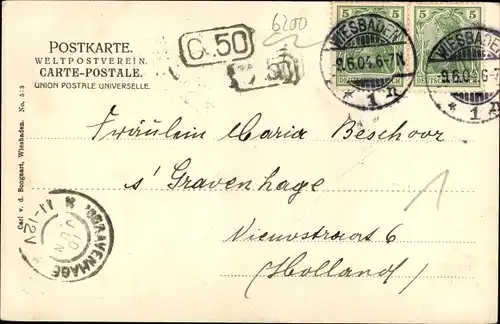 POSTKARTE.
WELTPOSTVEREIN.
CARTE-POSTALE.
UNION POSTALE UNIVERSELLE.
C. 50
50
6200
5 5
5 5
WIESBADEN
9.6.04.6-7N
* 1 n
WIESBADEN
9.6.04.6-7
* 1 n
Carl v. d. Boogaart, Wiesbaden. No. 513
Fräulein Maria Beschoor
s' Gravenhage
Nieuwstraat 6
(Holland)
1
'SGRAVENHAGE
10
JUN
11-12V